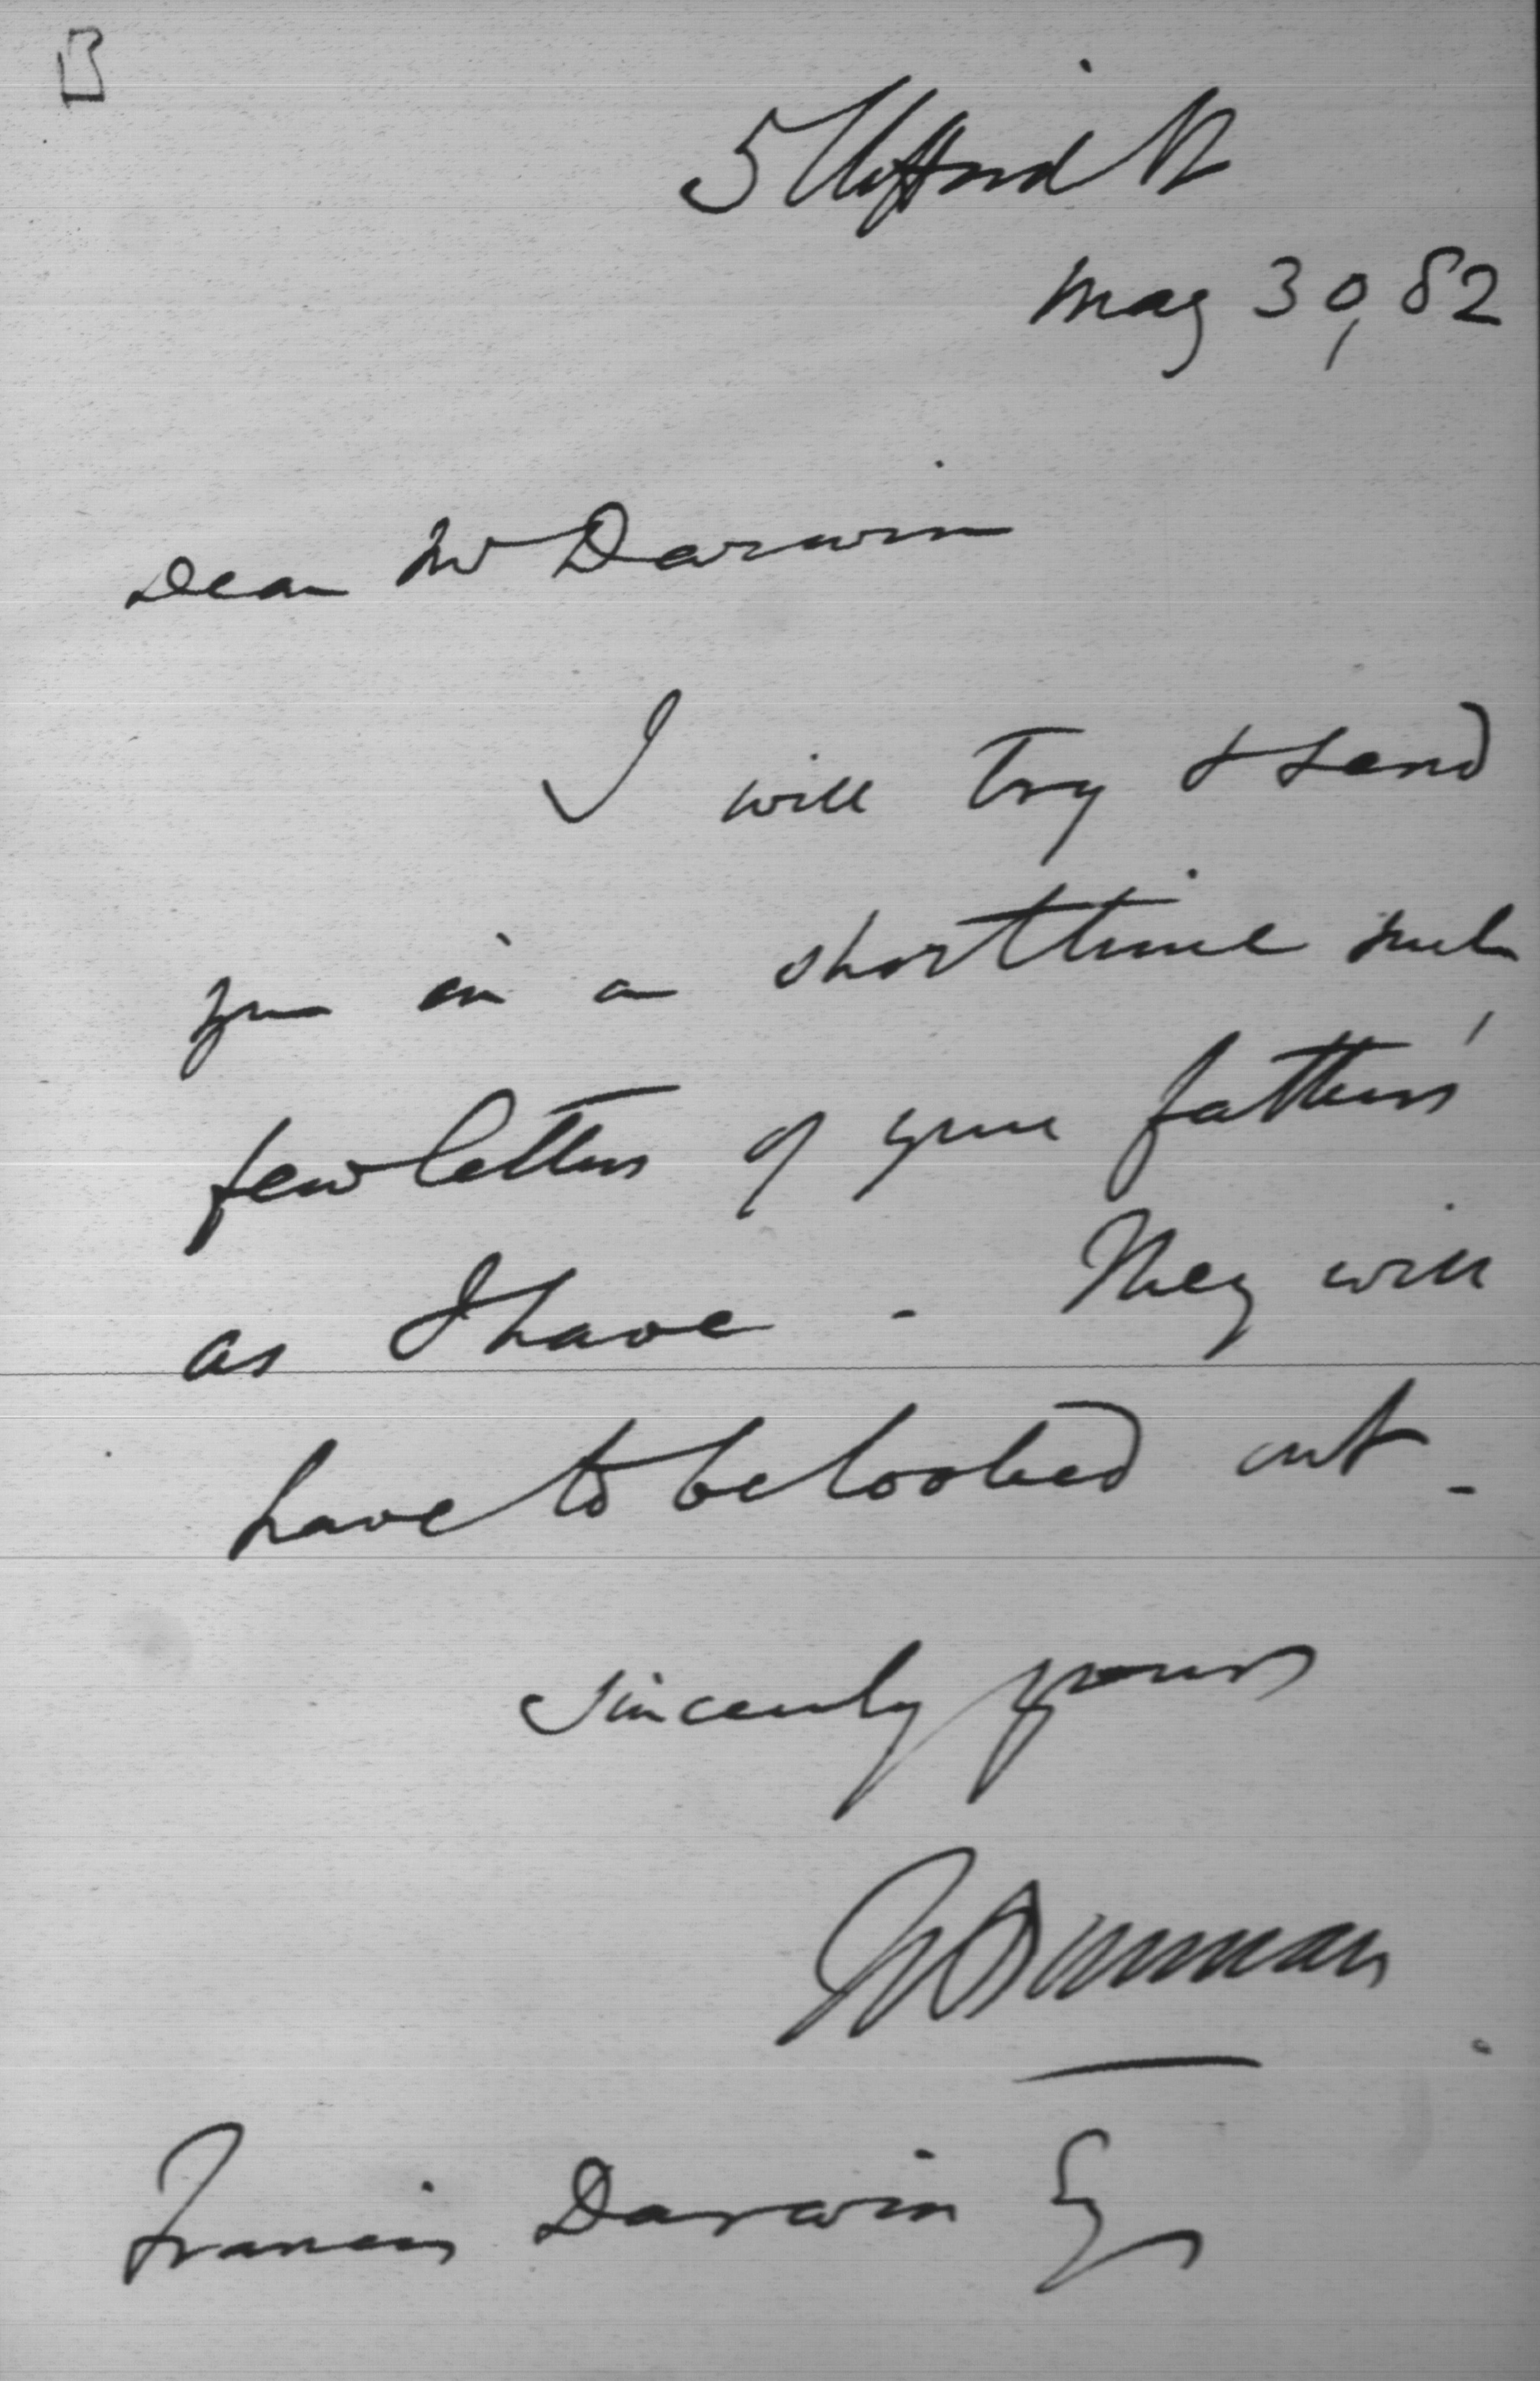 5 Clifford St
May 30, 82
Dear Mr Darwin
I will try & send
you in a short time such
few letters of your fathers'
as I have - They will
have to be looked out -
Sincerely yours
W Bowman
Francis Darwin Esq